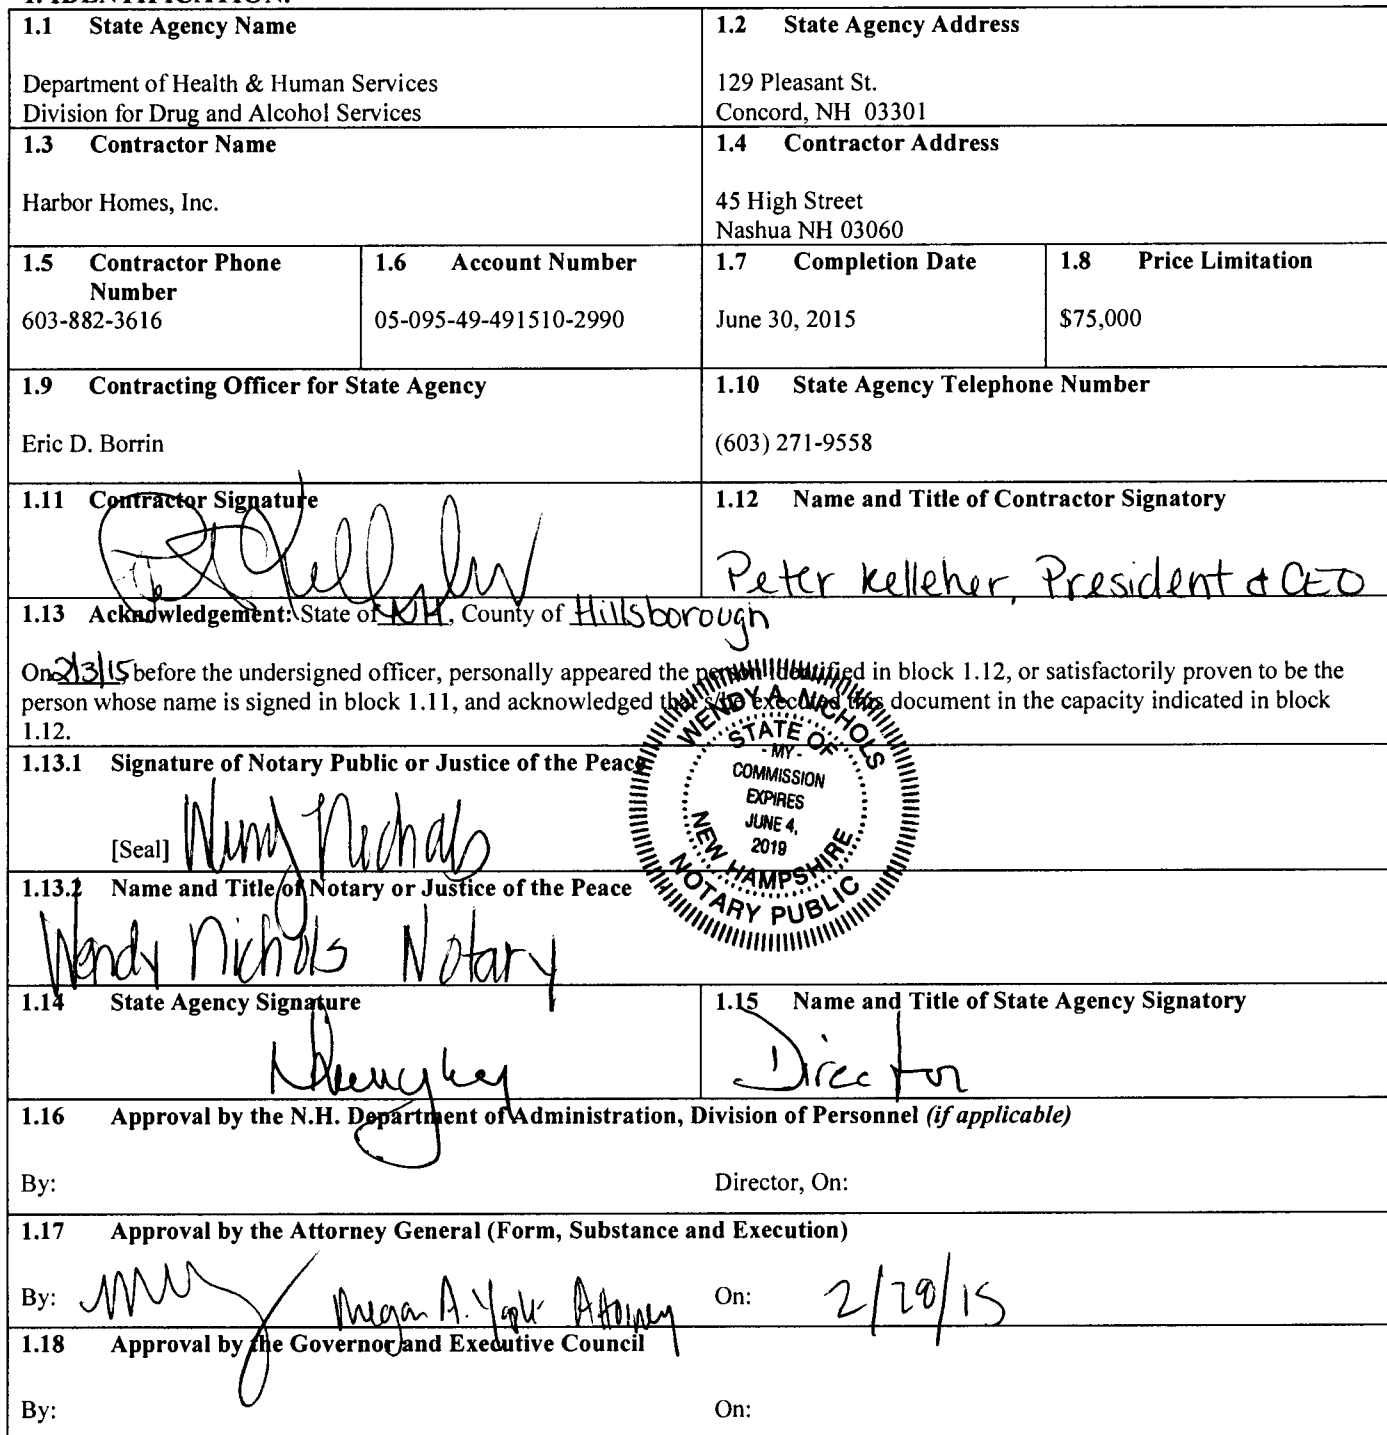 1.1 State Agency Name
Department of Health & Human Services
Division for Drug and Alcohol Services
1.2 State Agency Address
129 Pleasant St.
Concord, NH 03301
1.3 Contractor Name
Harbor Homes, Inc.
1.4 Contractor Address
45 High Street
Nashua NH 03060
1.5 Contractor Phone
Number
603-882-3616
1.6 Account Number
05-095-49-491510-2990
1.7 Completion Date
June 30, 2015
1.8 Price Limitation
$75,000
1.9 Contracting Officer for State Agency
Eric D. Borrin
1.10 State Agency Telephone Number
(603) 271-9558
1.11 Contractor Signature
1.12 Name and Title of Contractor Signatory
Peter Kelleher, President & CEO
1.13 Acknowledgement: State of NH, County of Hillsborough
On 2/3/15 before the undersigned officer, personally appeared the person identified in block 1.12, or satisfactorily proven to be the
person whose name is signed in block 1.11, and acknowledged that s/he executed this document in the capacity indicated in block
1.12.
1.13.1 Signature of Notary Public or Justice of the Peace
[Seal] Wendy Nichols
WENDY A. NICHOLS
STATE OF
- MY -
COMMISSION
EXPIRES
JUNE 4,
2019
NEW HAMPSHIRE
NOTARY PUBLIC
1.13.2 Name and Title of Notary or Justice of the Peace
Wendy Nichols Notary
1.14 State Agency Signature
1.15 Name and Title of State Agency Signatory
Director
1.16 Approval by the N.H. Department of Administration, Division of Personnel (if applicable)
By: Director, On:
1.17 Approval by the Attorney General (Form, Substance and Execution)
By: Megan A. Attorney On:
1.18 Approval by the Governor and Executive Council
By: On: